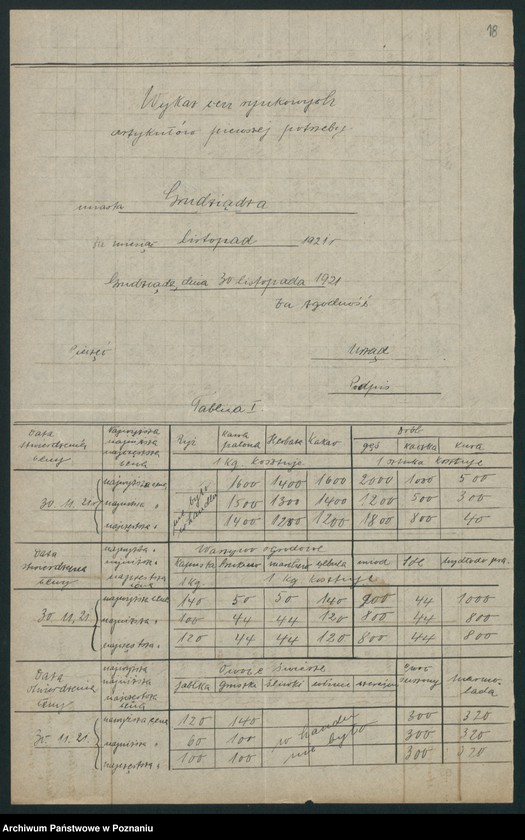 18
Wykaz cen rynkowych
artykułów pierwszej potrzeby
miasta Grudziądza
za miesiąc listopad 1921 r
Grudziądz, dnia 30 listopada 1921
Za zgodność
Pieczęć Urząd
Podpis
Tablica I
Data stwierdzenia ceny najwyższa najniższa najczęstsza cena Ryż Kawa palona Herbata Kakao Drób gęś kaczka kura
1 Kg. kosztuje 1 sztuka kosztuje
30. 11. 21 najwyższa cena nie było w handlu 1600 1400 1600 2000 1000 500
najniższa " 1500 1300 1400 1200 500 300
najczęstsza " 1400 1200 1200 1800 800 40
Data stwierdzenia ceny najwyższa najniższa najczęstsza cena Warzywo ogrodowe
kapusta marchew cebula miód Sól
1 Kg. 1 Kg kosztuje
30. 11. 21. najwyższa cena 140 50 50 140 900 44 1000
najniższa " 100 44 44 120 800 44 800
najczęstsza " 120 44 44 120 800 44 800
Data stwierdzenia ceny najwyższa najniższa najczęstsza cena Owoce świeże Owoc suszony Marmolada
Jabłka gruszka śliwki
30. 11. 21. najwyższa cena 120 140 w handlu nie było 300 320
najniższa " 60 100 300 320
najczęstsza " 100 100 300 320
Archiwum Państwowe w Poznaniu